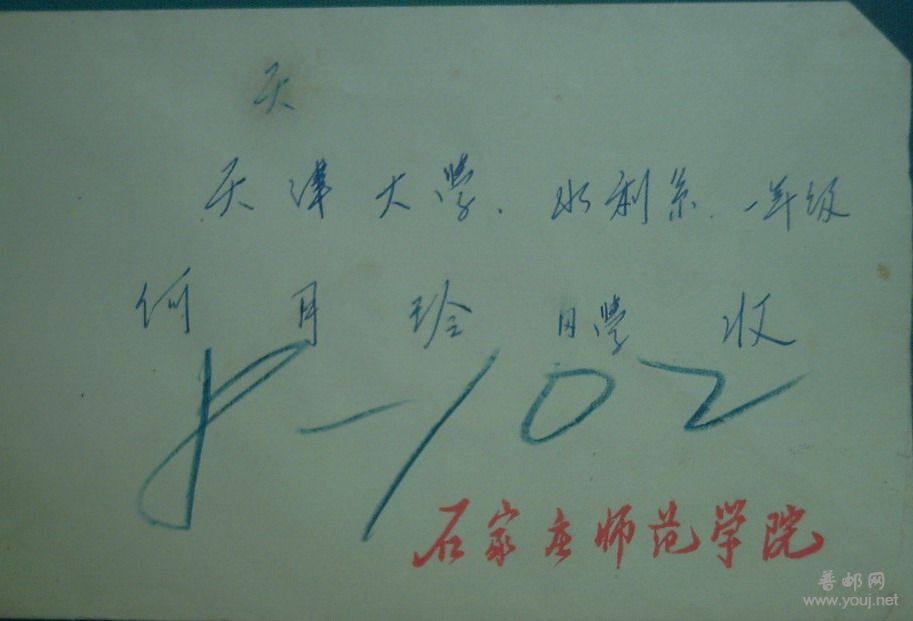 天
天津大学、水利系、一年级
何月玲同学 收
8-102
石家庄师范学院
普邮网
www.youj.net